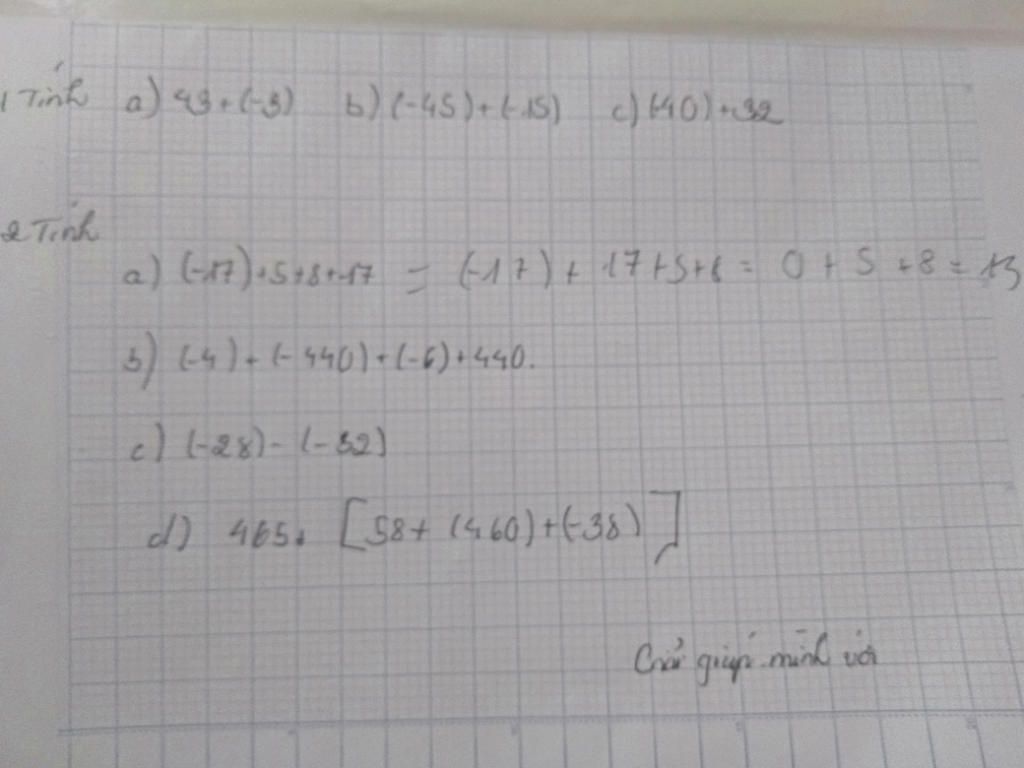 1 Tính a) 43 + (-3) b) (-45) + (-15) c) (-40) + 32
2 Tính
a) (-17) + 5 + 8 + 17 = (-17) + 17 + 5 + 8 = 0 + 5 + 8 = 13
b) (-4) + (-440) + (-6) + 440.
c) (-28) - (-32)
d) 465 + [58 + (460) + (-38)]
giúp mình với